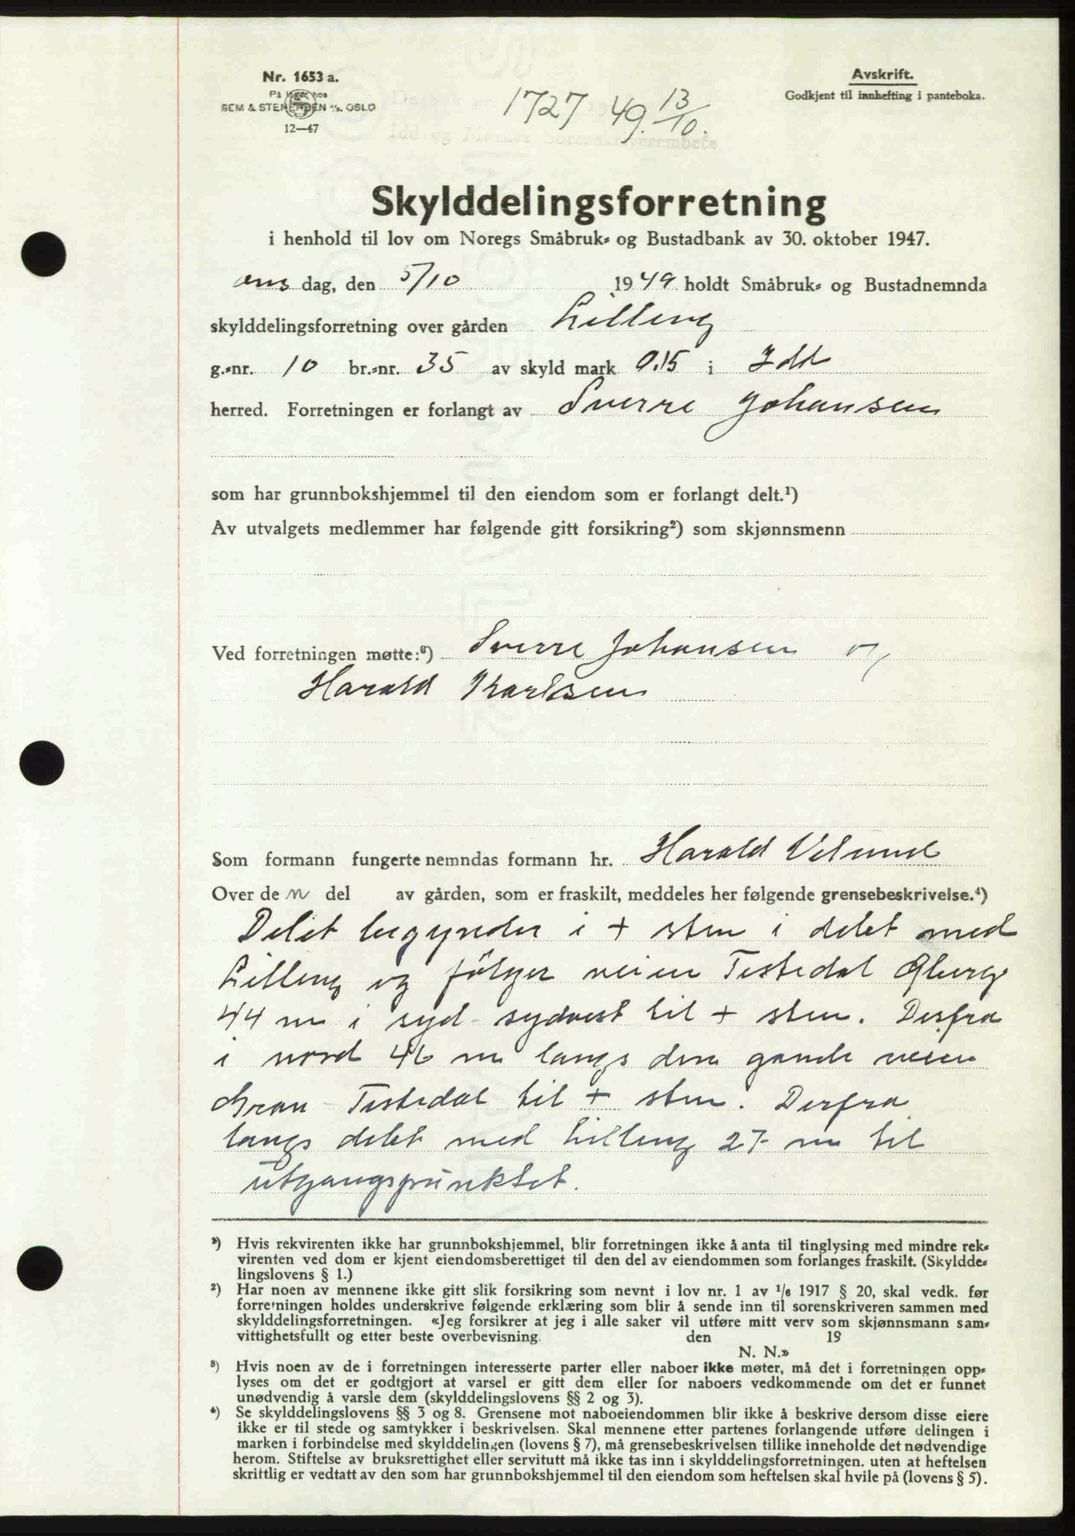 Nr. 1653 a.
På lager hos
SEM & STENERSEN A/S. OSLO
12—47
Avskrift.
Godkjent til innhefting i panteboka.
1727 49. 13/10.
Skylddelingsforretning
i henhold til lov om Noregs Småbruk- og Bustadbank av 30. oktober 1947.
ons dag, den 5/10 1949 holdt Småbruk- og Bustadnemnda
skylddelingsforretning over gården Lilleng
g.-nr. 10 br.-nr. 35 av skyld mark 0.15 i Idd
herred. Forretningen er forlangt av Sverre Johansen
som har grunnbokshjemmel til den eiendom som er forlangt delt.¹)
Av utvalgets medlemmer har følgende gitt forsikring²) som skjønnsmenn
Ved forretningen møtte:³) Sverre Johansen og
Harald Karlsen
Som formann fungerte nemndas formann hr. Harald Velund
Over de n del av gården, som er fraskilt, meddeles her følgende grensebeskrivelse.⁴)
Delet begynder i + sten i delet med
Lilleng og følger veien Tistedal
44 m i syd-sydvest til + sten. Derfra
i nord 46 m langs den gamle veien
Tistedal til + sten. Derfra
langs delet med Lilleng 27 m til
utgangspunktet.
¹) Hvis rekvirenten ikke har grunnbokshjemmel, blir forretningen ikke å anta til tinglysing med mindre rek-
virenten ved dom er kjent eiendomsberettiget til den del av eiendommen som forlanges fraskilt. (Skyldde-
lingslovens § 1.)
²) Har noen av mennene ikke gitt slik forsikring som nevnt i lov nr. 1 av 1/6 1917 § 20, skal vedk. før
forretningen holdes underskrive følgende erklæring som blir å sende inn til sorenskriveren sammen med
skylddelingsforretningen. «Jeg forsikrer at jeg i alle saker vil utføre mitt verv som skjønnsmann sam-
vittighetsfullt og etter beste overbevisning. den 19
N. N.»
³) Hvis noen av de i forretningen interesserte parter eller naboer ikke møter, må det i forretningen opp-
lyses om det er godtgjort at varsel er gitt dem eller for naboers vedkommende om det er funnet
unødvendig å varsle dem (skylddelingslovens §§ 2 og 3).
⁴) Se skylddelingslovens §§ 3 og 8. Grensene mot naboeiendommen blir ikke å beskrive dersom disse eiere
ikke er til stede og samtykker i beskrivelsen. Skal mennene etter partenes forlangende utføre delingen i
marken i forbindelse med skylddelingen (lovens § 7), må grensebeskrivelsen tillike inneholde det nødvendige
herom. Stiftelse av bruksrettighet eller servitutt må ikke tas inn i skylddelingsforretningen. uten at heftelsen
skriftlig er vedtatt av den som har grunnbokshjemmel til den eiendom som heftelsen skal hvile på (lovens § 5).